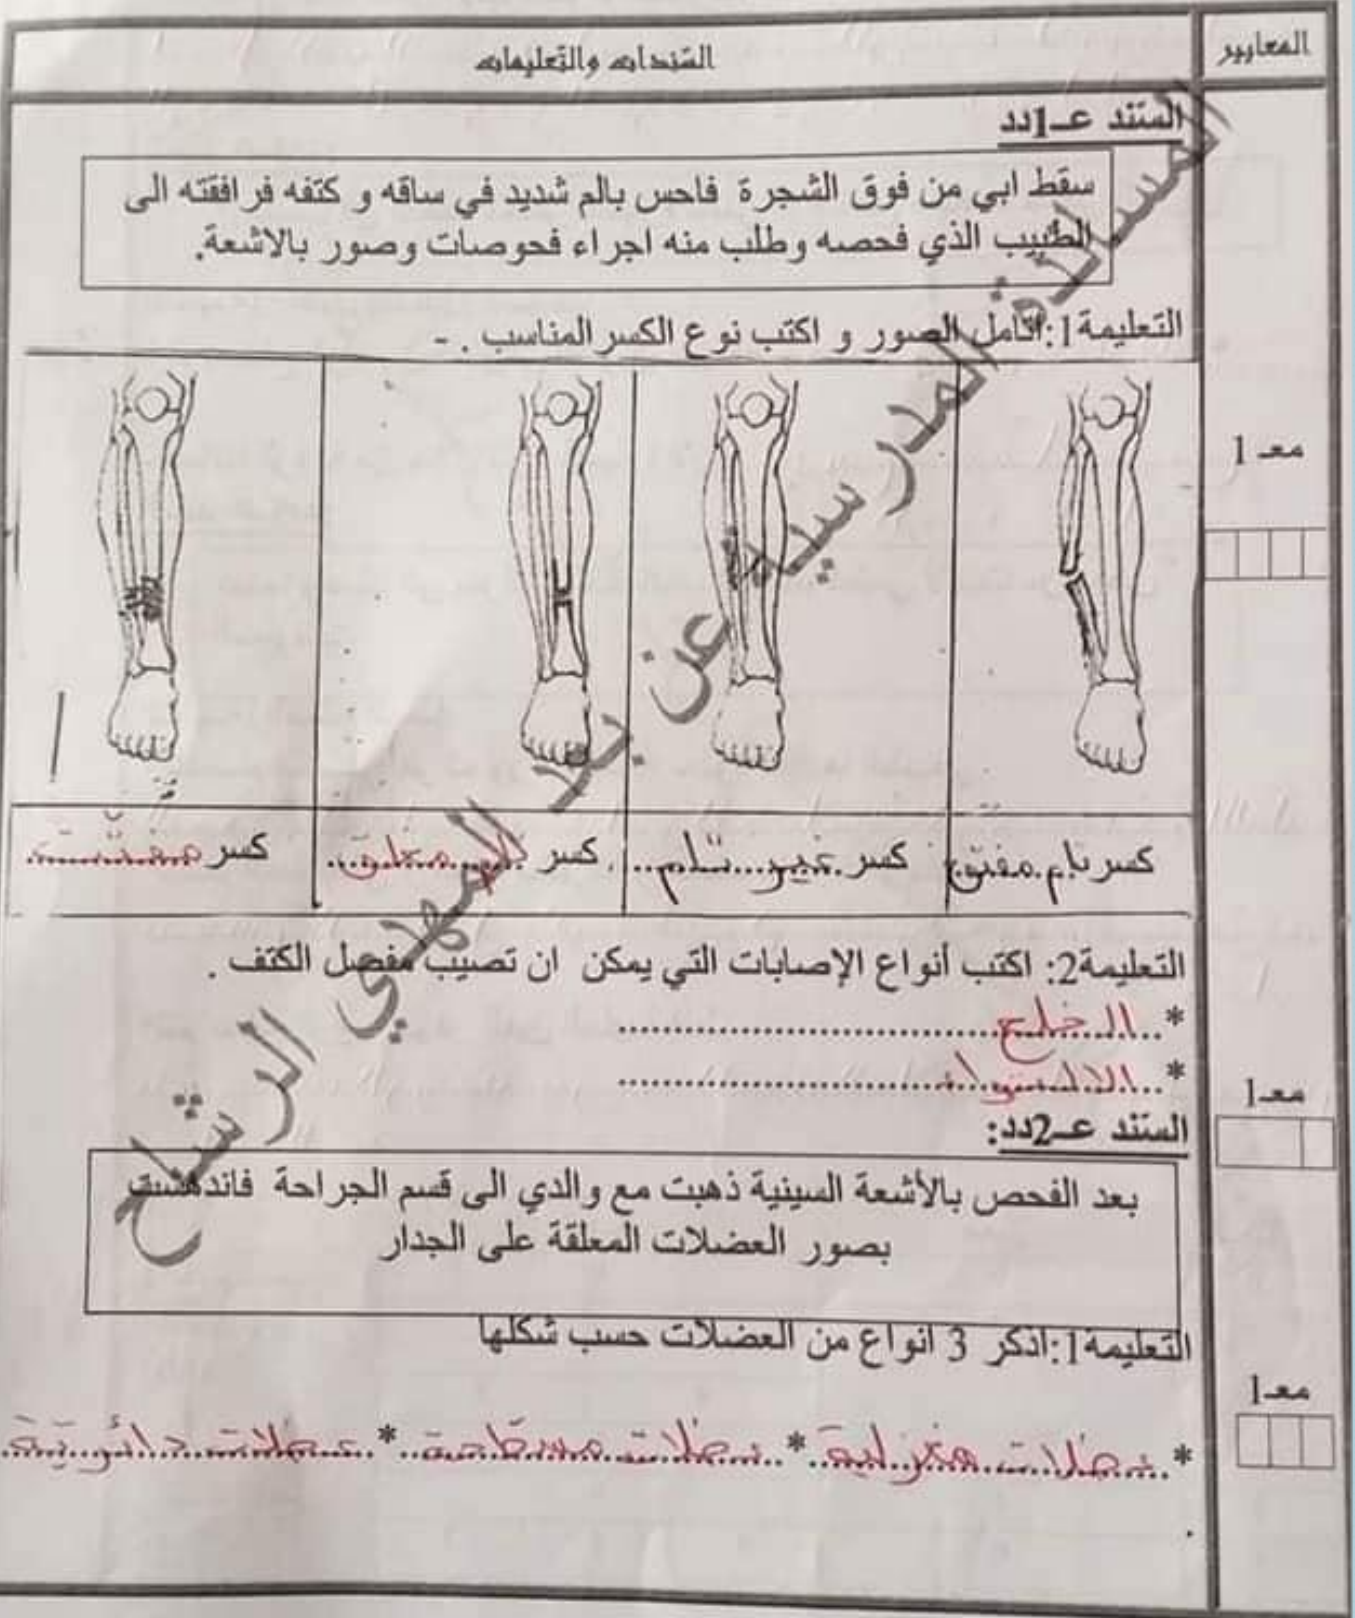 المعايير
السّندات والتّعليمات
السّند عـ1دد
سقط ابي من فوق الشجرة فاحس بالم شديد في ساقه و كتفه فرافقته الى
الطبيب الذي فحصه وطلب منه اجراء فحوصات وصور بالاشعة.
التعليمة1:اتامل الصور و اكتب نوع الكسر المناسب . -
معـ 1
كسر تام مفتوح
كسر غير تام
كسر تام مغلق
كسر مفتّت
التعليمة2: اكتب أنواع الإصابات التي يمكن ان تصيب مفصل الكتف .
* الخلع
* الالتواء
معـ1
السّند عـ2دد:
بعد الفحص بالأشعة السينية ذهبت مع والدي الى قسم الجراحة فاندهشت
بصور العضلات المعلقة على الجدار
التعليمة1:اذكر 3 انواع من العضلات حسب شكلها
معـ1
* عضلات مغزلية * عضلات مسطحة * عضلات دائريّة
المساندة المدرسية عن بعد المهدي الرشاح